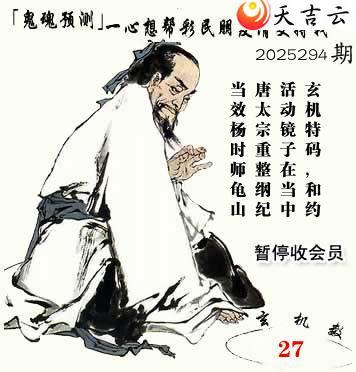 天吉云
「鬼魂预测」一心想帮彩民朋友
2025294 期
玄机特码,和约
活动镜子在当中
唐太宗重整纲纪
当效杨时师龟山
暂停收会员
玄机数
27